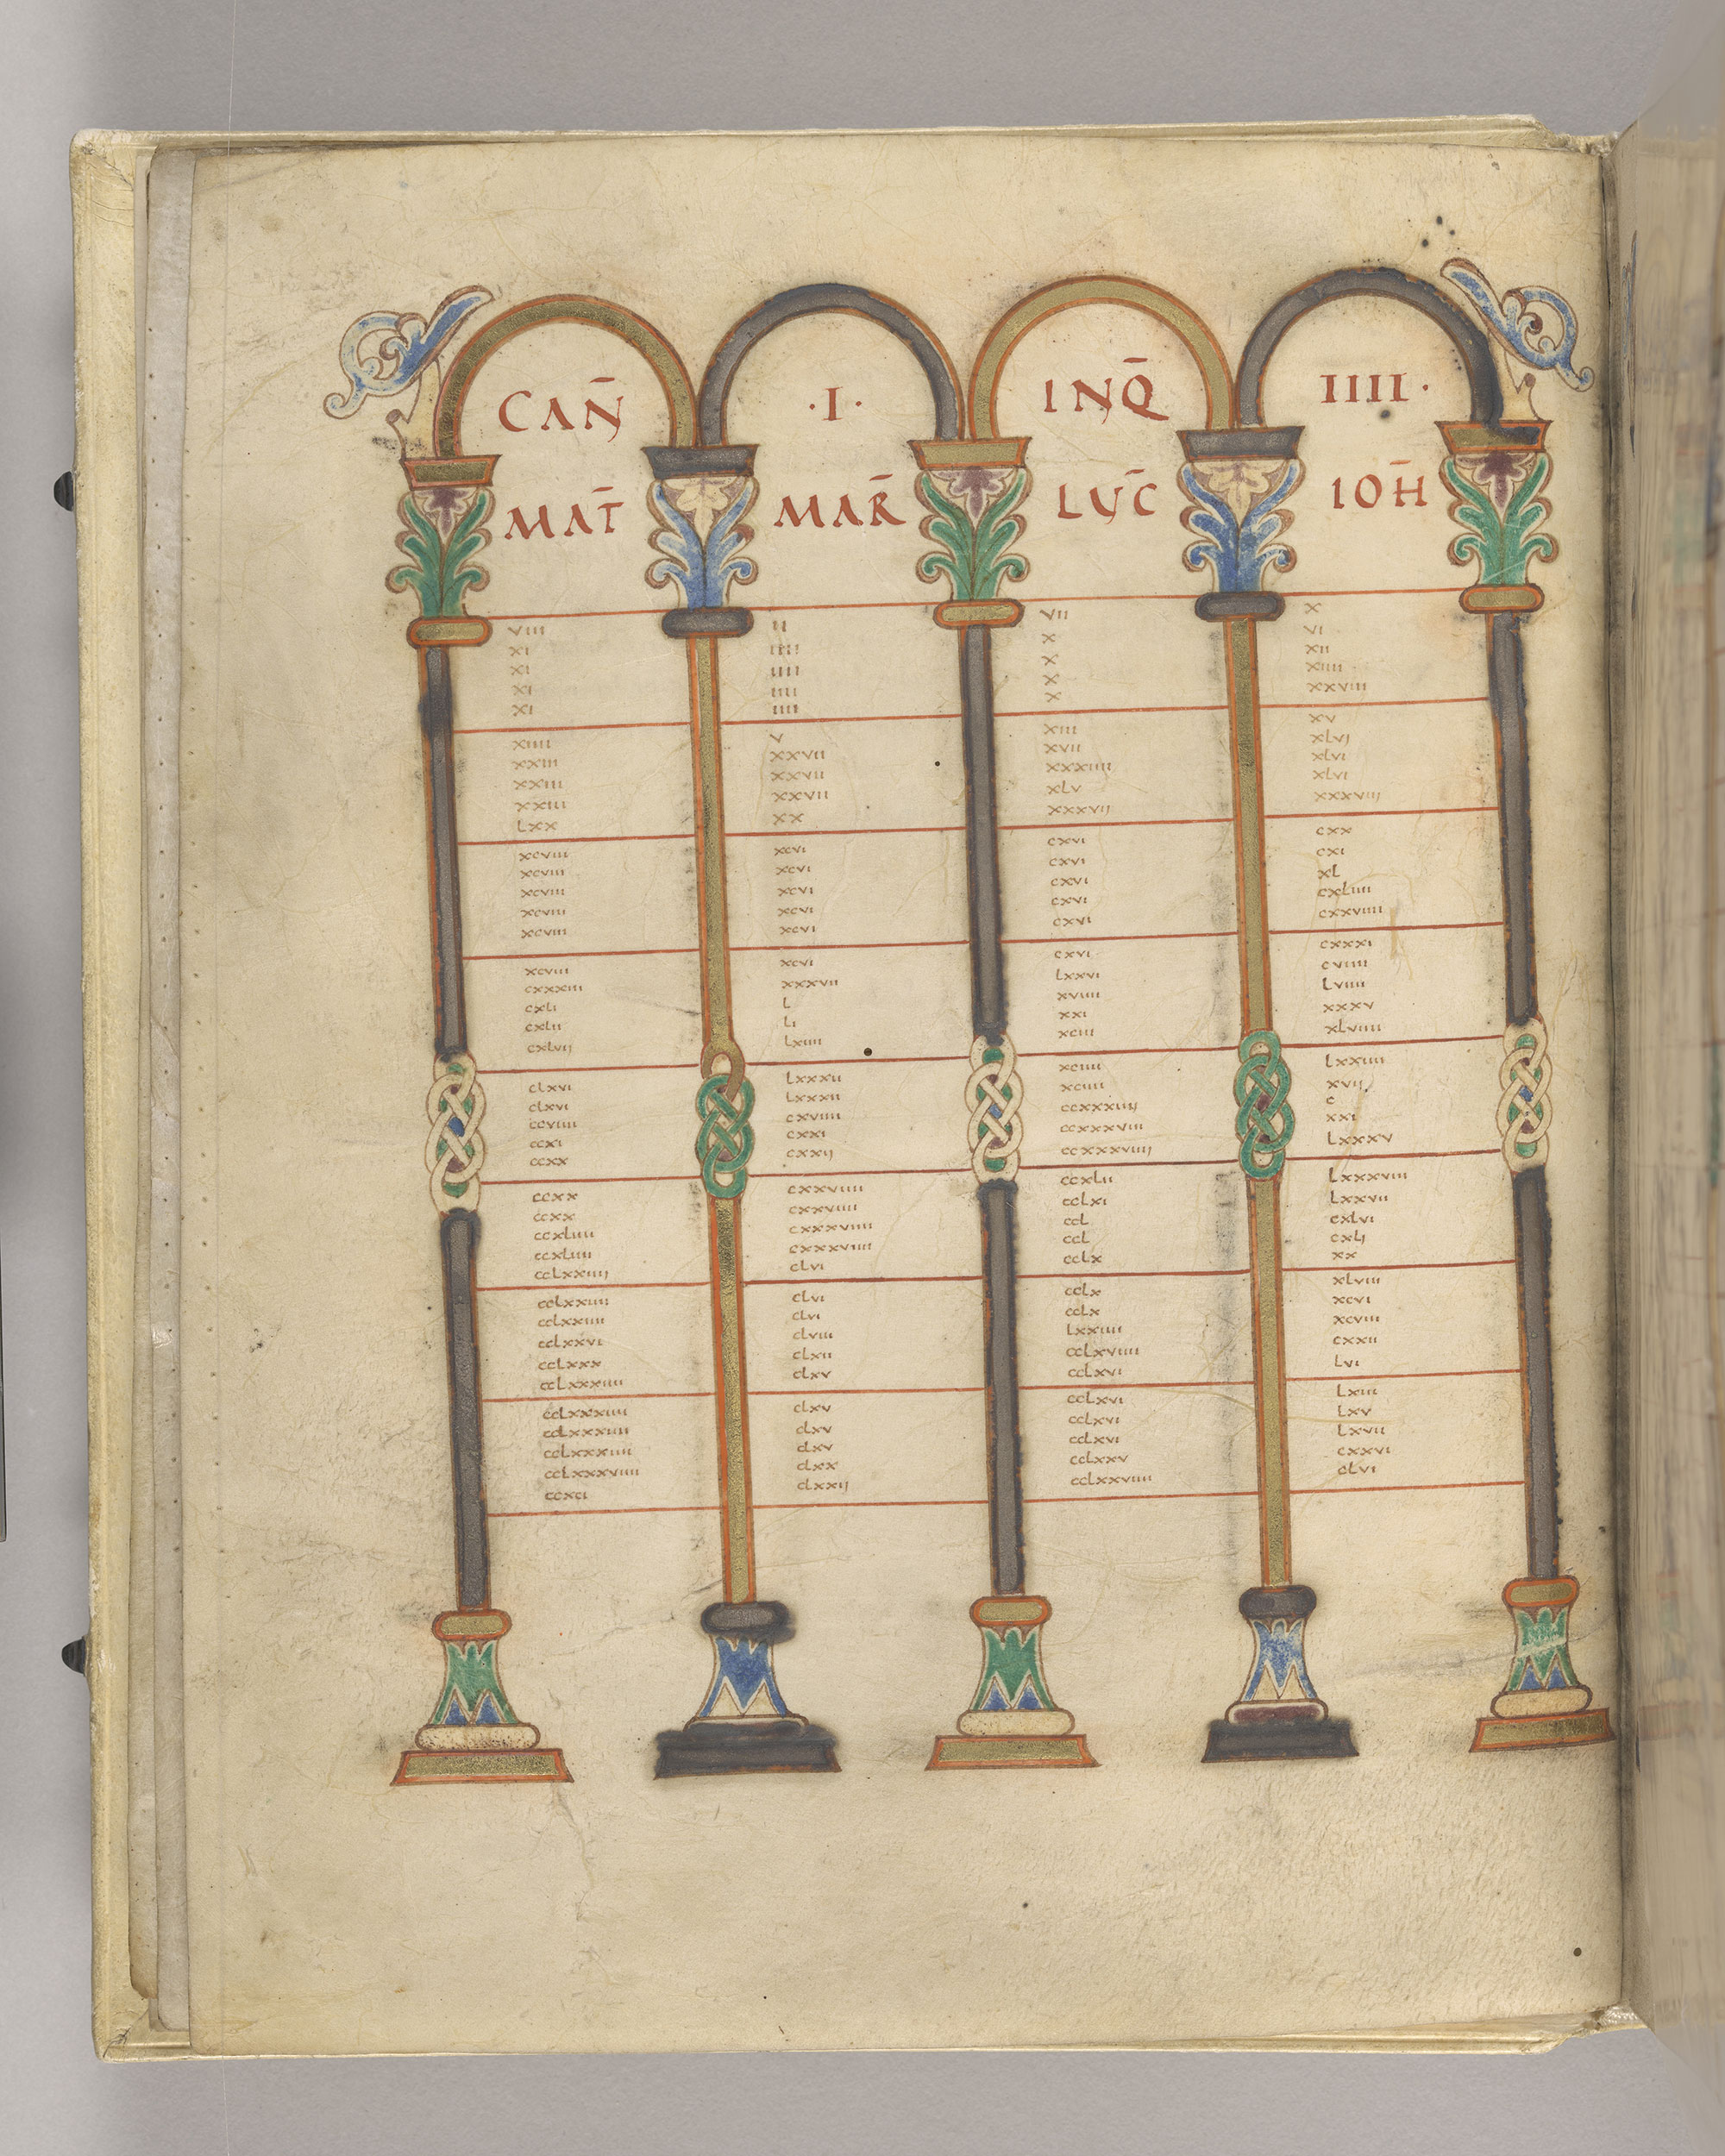 CAN̄ ·I· INQ̄ IIII·
MAT̄ MAR̄ LUC̄ IOH̄
viii ii vii x
xi iiii x vi
xi iiii x xii
xi iiii x xiiii
xi iiii x xxviii
xiiii v xiii xv
xxiii xxvii xvii xlvj
xxiii xxvii xxxiiii xlvi
xxiii xxvii xlv xlvi
lxx xx xxxvij xxxviij
xcviii xcvi cxvi cxx
xcviii xcvi cxvi cxi
xcviii xcvi cxvi xl
xcviii xcvi cxvi cxliiii
xcviii xcvi cxvi cxxviiii
xcviii xcvi cxvi cxxxi
cxxxiii xxxvii lxxvi cviiii
cxli l xviiii lviiii
cxlii li xxi xxxv
cxlvij lxiiii xciii xlviiii
clxvi lxxxii xciiii lxxiiii
clxvi lxxxii xciiii xvij
ccviiii cxviiii ccxxxiiij c
ccxi cxxi ccxxxviii xxi
ccxx cxxij ccxxxviiij lxxxv
ccxx cxxviiii ccxlii lxxxviii
ccxx cxxviiii cclxi lxxvii
ccxliiii cxxxviiii ccl cxlvi
ccxliiii cxxxviiii ccl cxlj
cclxxiiij clvi cclx xx
cclxxiiii clvi cclx xlviii
cclxxiiii clvi cclx xcvi
cclxxvi clviii lxxiiii xcviii
cclxxx clxii cclxviiii cxxii
cclxxxiiii clxv cclxvi lvi
cclxxxiiii clxv cclxvi lxiii
cclxxxiiii clxv cclxvi lxv
cclxxxiiii clxv cclxvi lxvii
cclxxxviiii clxx cclxxv cxxvi
ccxci clxxij cclxxviiii clvi